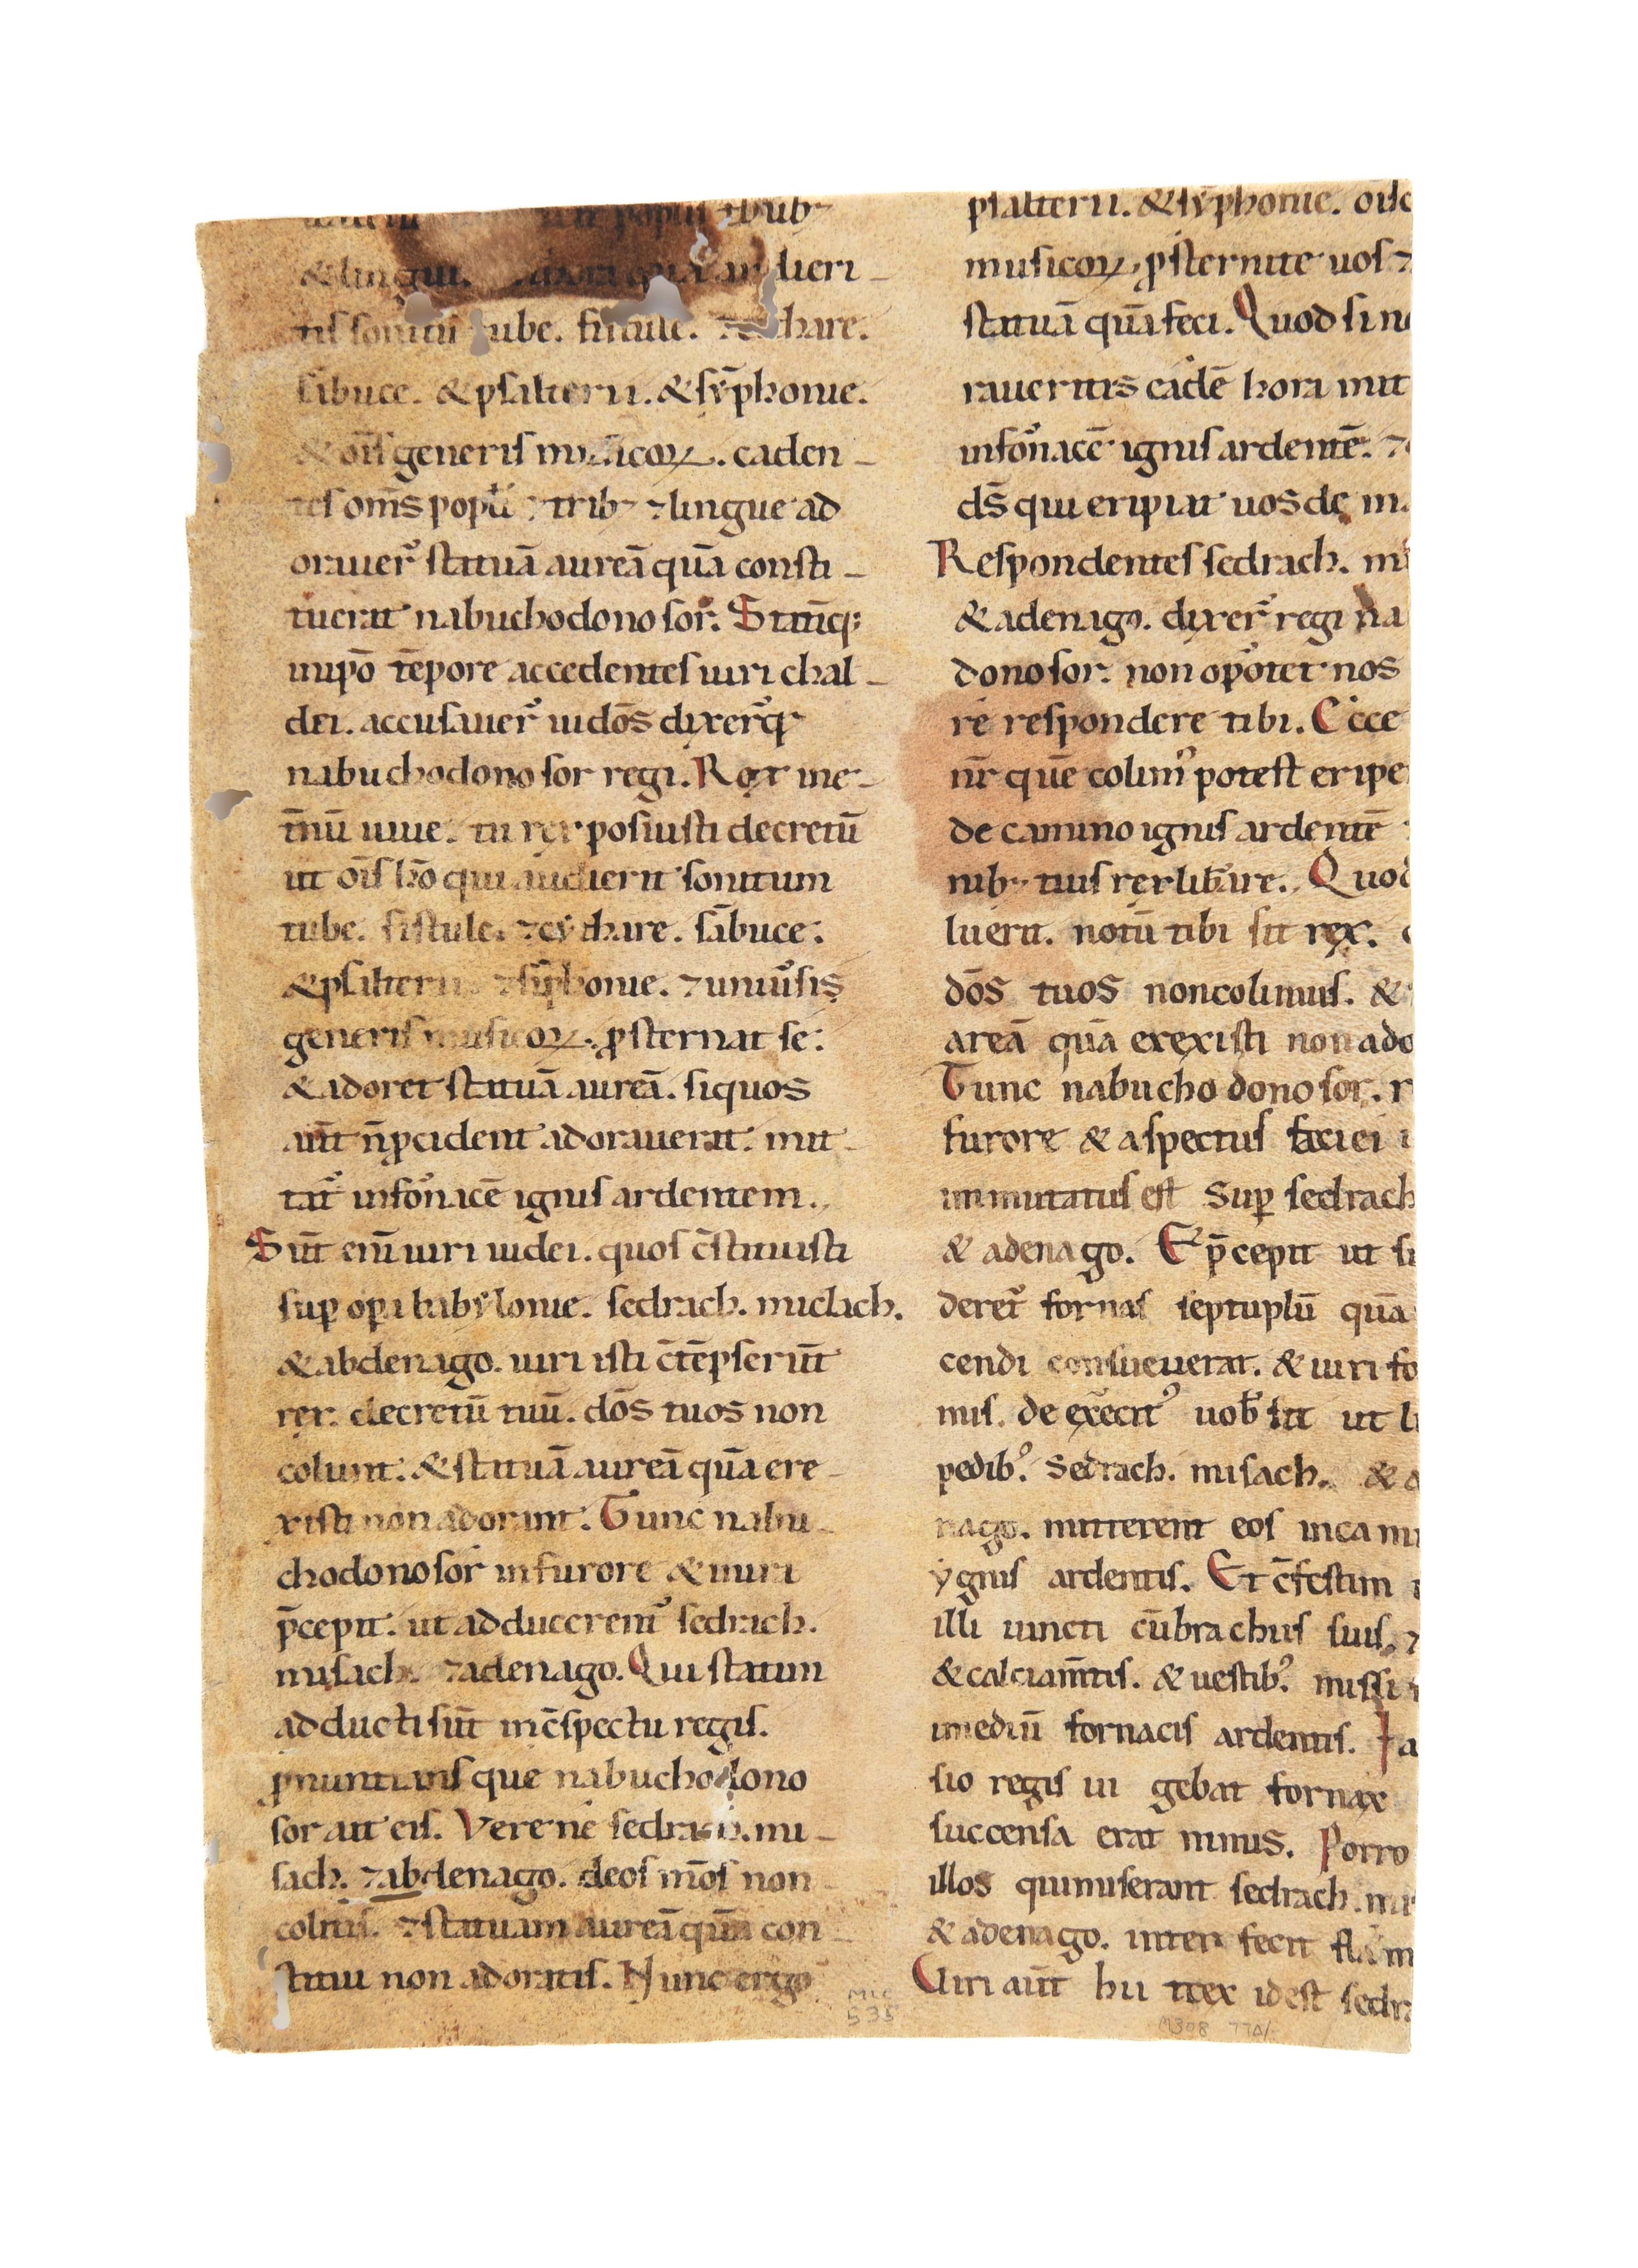 popul 
& lingui. dieri -
tis sonitu tube. fistule. ⁊ chare.
sābuce. & psalterii. & sȳphonie.
& oīs generis musicoꝝ. caden -
tes om̄s popłi ⁊ trib⁊ ⁊ lingue ad
orauer᷒ statuā aureā quā consti -
tuerat nabuchodonosor. Statīq;
in ip̄o tēpore accedentes uiri chal -
dei. accusauer᷒ iudōs dixer᷒q;
nabuchodonosor regi. Rex ine -
t̄nū uiue. tu rex posuisti decretū
ut oīs hō qui audierit sonitum
tube. fistule. ⁊ cythare. sābuce.
& psalterii ⁊ sȳphonie. ⁊ uniu᷒sis
generis musicoꝝ. ꝓsternat se.
& adoret statuā aureā. siquos
aūt n̄ ꝓcident adorauerit. mit -
tat᷒ in fo᷒nacē ignis ardentem.
Sūt enī uiri iudei. quos c̄stituisti
suꝑ oꝑa babylonie. sedrach. midach.
& abdenago. uiri isti c̄tēpserūt
rex. decretū tuū. dōs tuos non
colunt. & statuā aureā quā ere -
xisti non adorant. Tunc nabu -
chodonosor in furore & in ira
p̄cepit. ut adducerent᷒ sedrach.
misach. ⁊ adenago. Qui statim
adducti sūt in c̄spectu regis.
ꝓnuntians que nabuchodono
sor ait eis. Vere ne sedrach. mi -
sach. ⁊ abdenago. deos mōs non
colitis. ⁊ statuam aureā quā con -
stitui non adoratis. Nunc ergo
psalterii. & sȳphonie. oīsc
musicoꝝ. ꝓsternite uos ⁊
statuā quā feci. Quod si n
raueritis eadē hora mit
in fo᷒nacē ignis ardentē. ⁊
d̄s qui eripiat uos de m
Respondentes sedrach. mi
& adenago. dixer᷒ regi na
donosor. non opo᷒tet nos
re respondere tibi. Ecce
n̄r quē colim᷒ potest eripe
de camino ignis ardentē
nib⁊ tuis rex lib̄are. Quod
luerit. notū tibi sit rex.
dōs tuos non colimus. &
areā quā erexisti non ado
Tunc nabuchodonosor. r
furore & aspectus faciei i
immutatus est suꝑ sedrach
& adenago. E p̄cepit ut su
deret᷒ fornas septuplū quā
cendi consueuerat. & uiri fo
mis. de exēcit᷒ uob̄ sit ut li
pedib᷒. sedrach. misach. & a
nago. mitterent eos in cami
ygnis ardentis. Et c̄festim
illi iuncti cū brachiis suis. ⁊
& calciam̄tis. & uestib᷒. missi
i mediū fornacis ardentis. Ia
sio regis ui gebat fornax
succensa erat nimis. Porro
illos qui miserant sedrach. mi
& adenago. interfecit flām
Uiri aūt hii trex id est sedra
MLC
535
M308 770/-